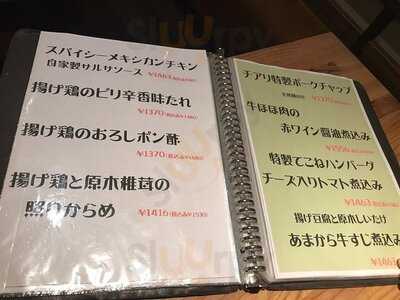 スパイシーメキシカンチキン
自家製サルサソース ¥1463
揚げ鶏のピリ辛香味たれ
¥1370
揚げ鶏のおろしポン酢
¥1370
揚げ鶏と原木椎茸の
照りからめ ¥1416
チアリ特製ポークチャップ
¥1370
牛ほほ肉の
赤ワイン醤油煮込み
特製てごねハンバーグ
チーズ入りトマト煮込み
¥1463
揚げ豆腐と原木しいたけ
あまから牛すじ煮込み
¥1463